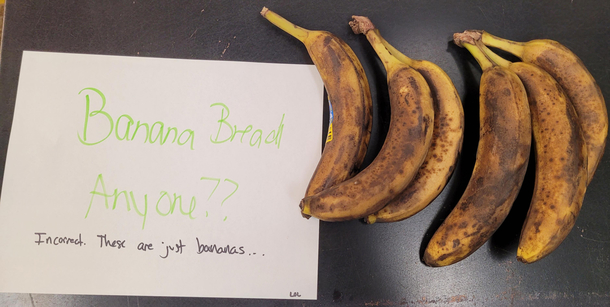 Banana Bread
Anyone??
Incorrect. These are just bananas...
LOL